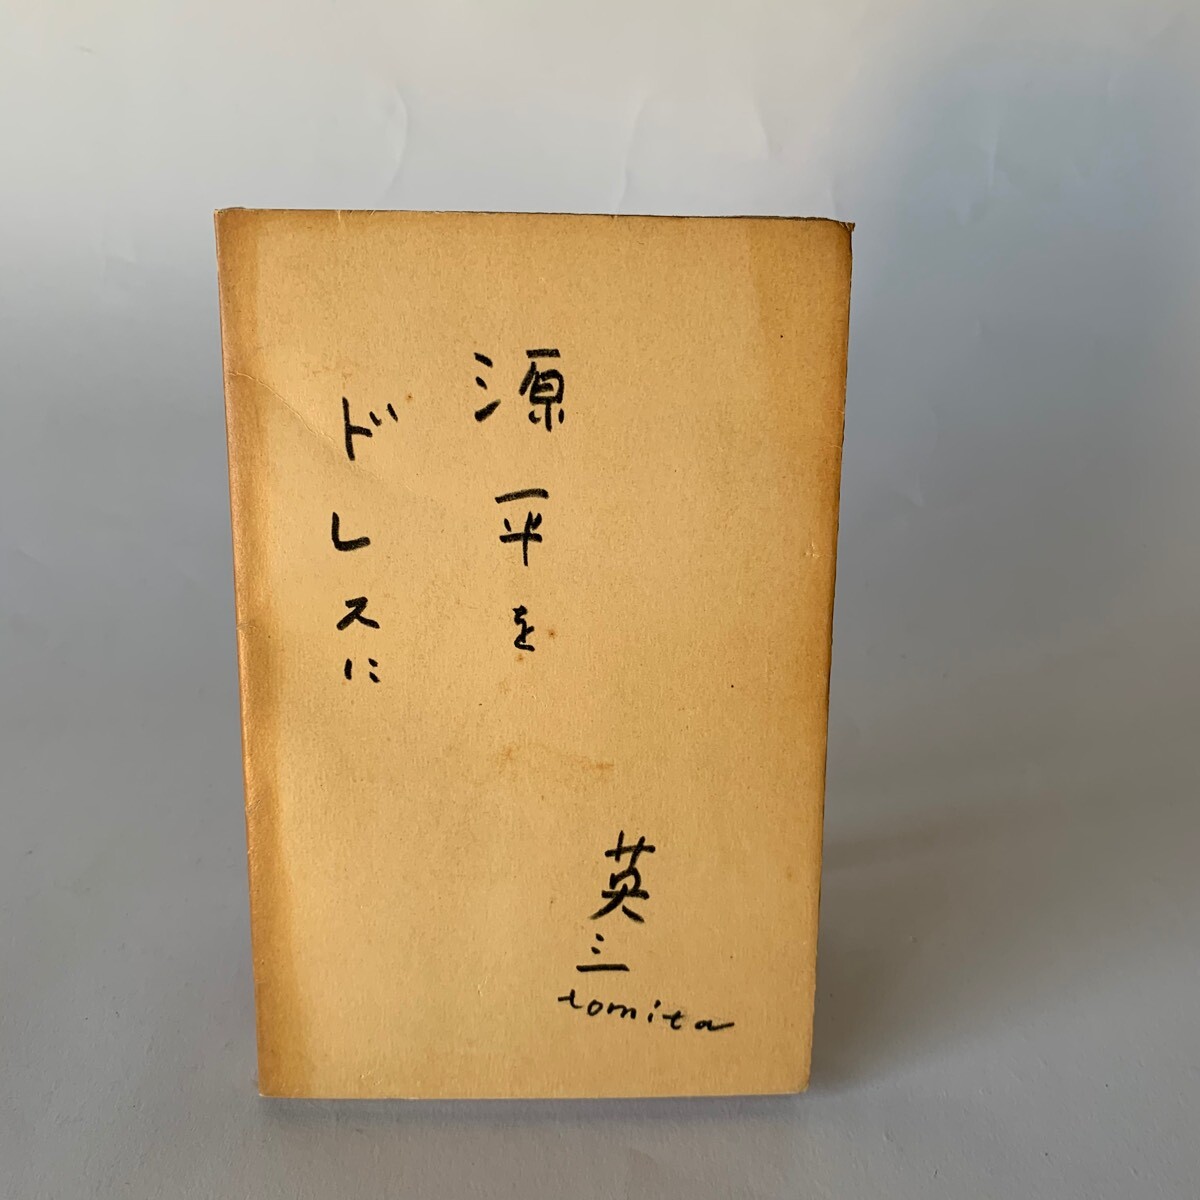 源平を
ドレスに
英三
tomita